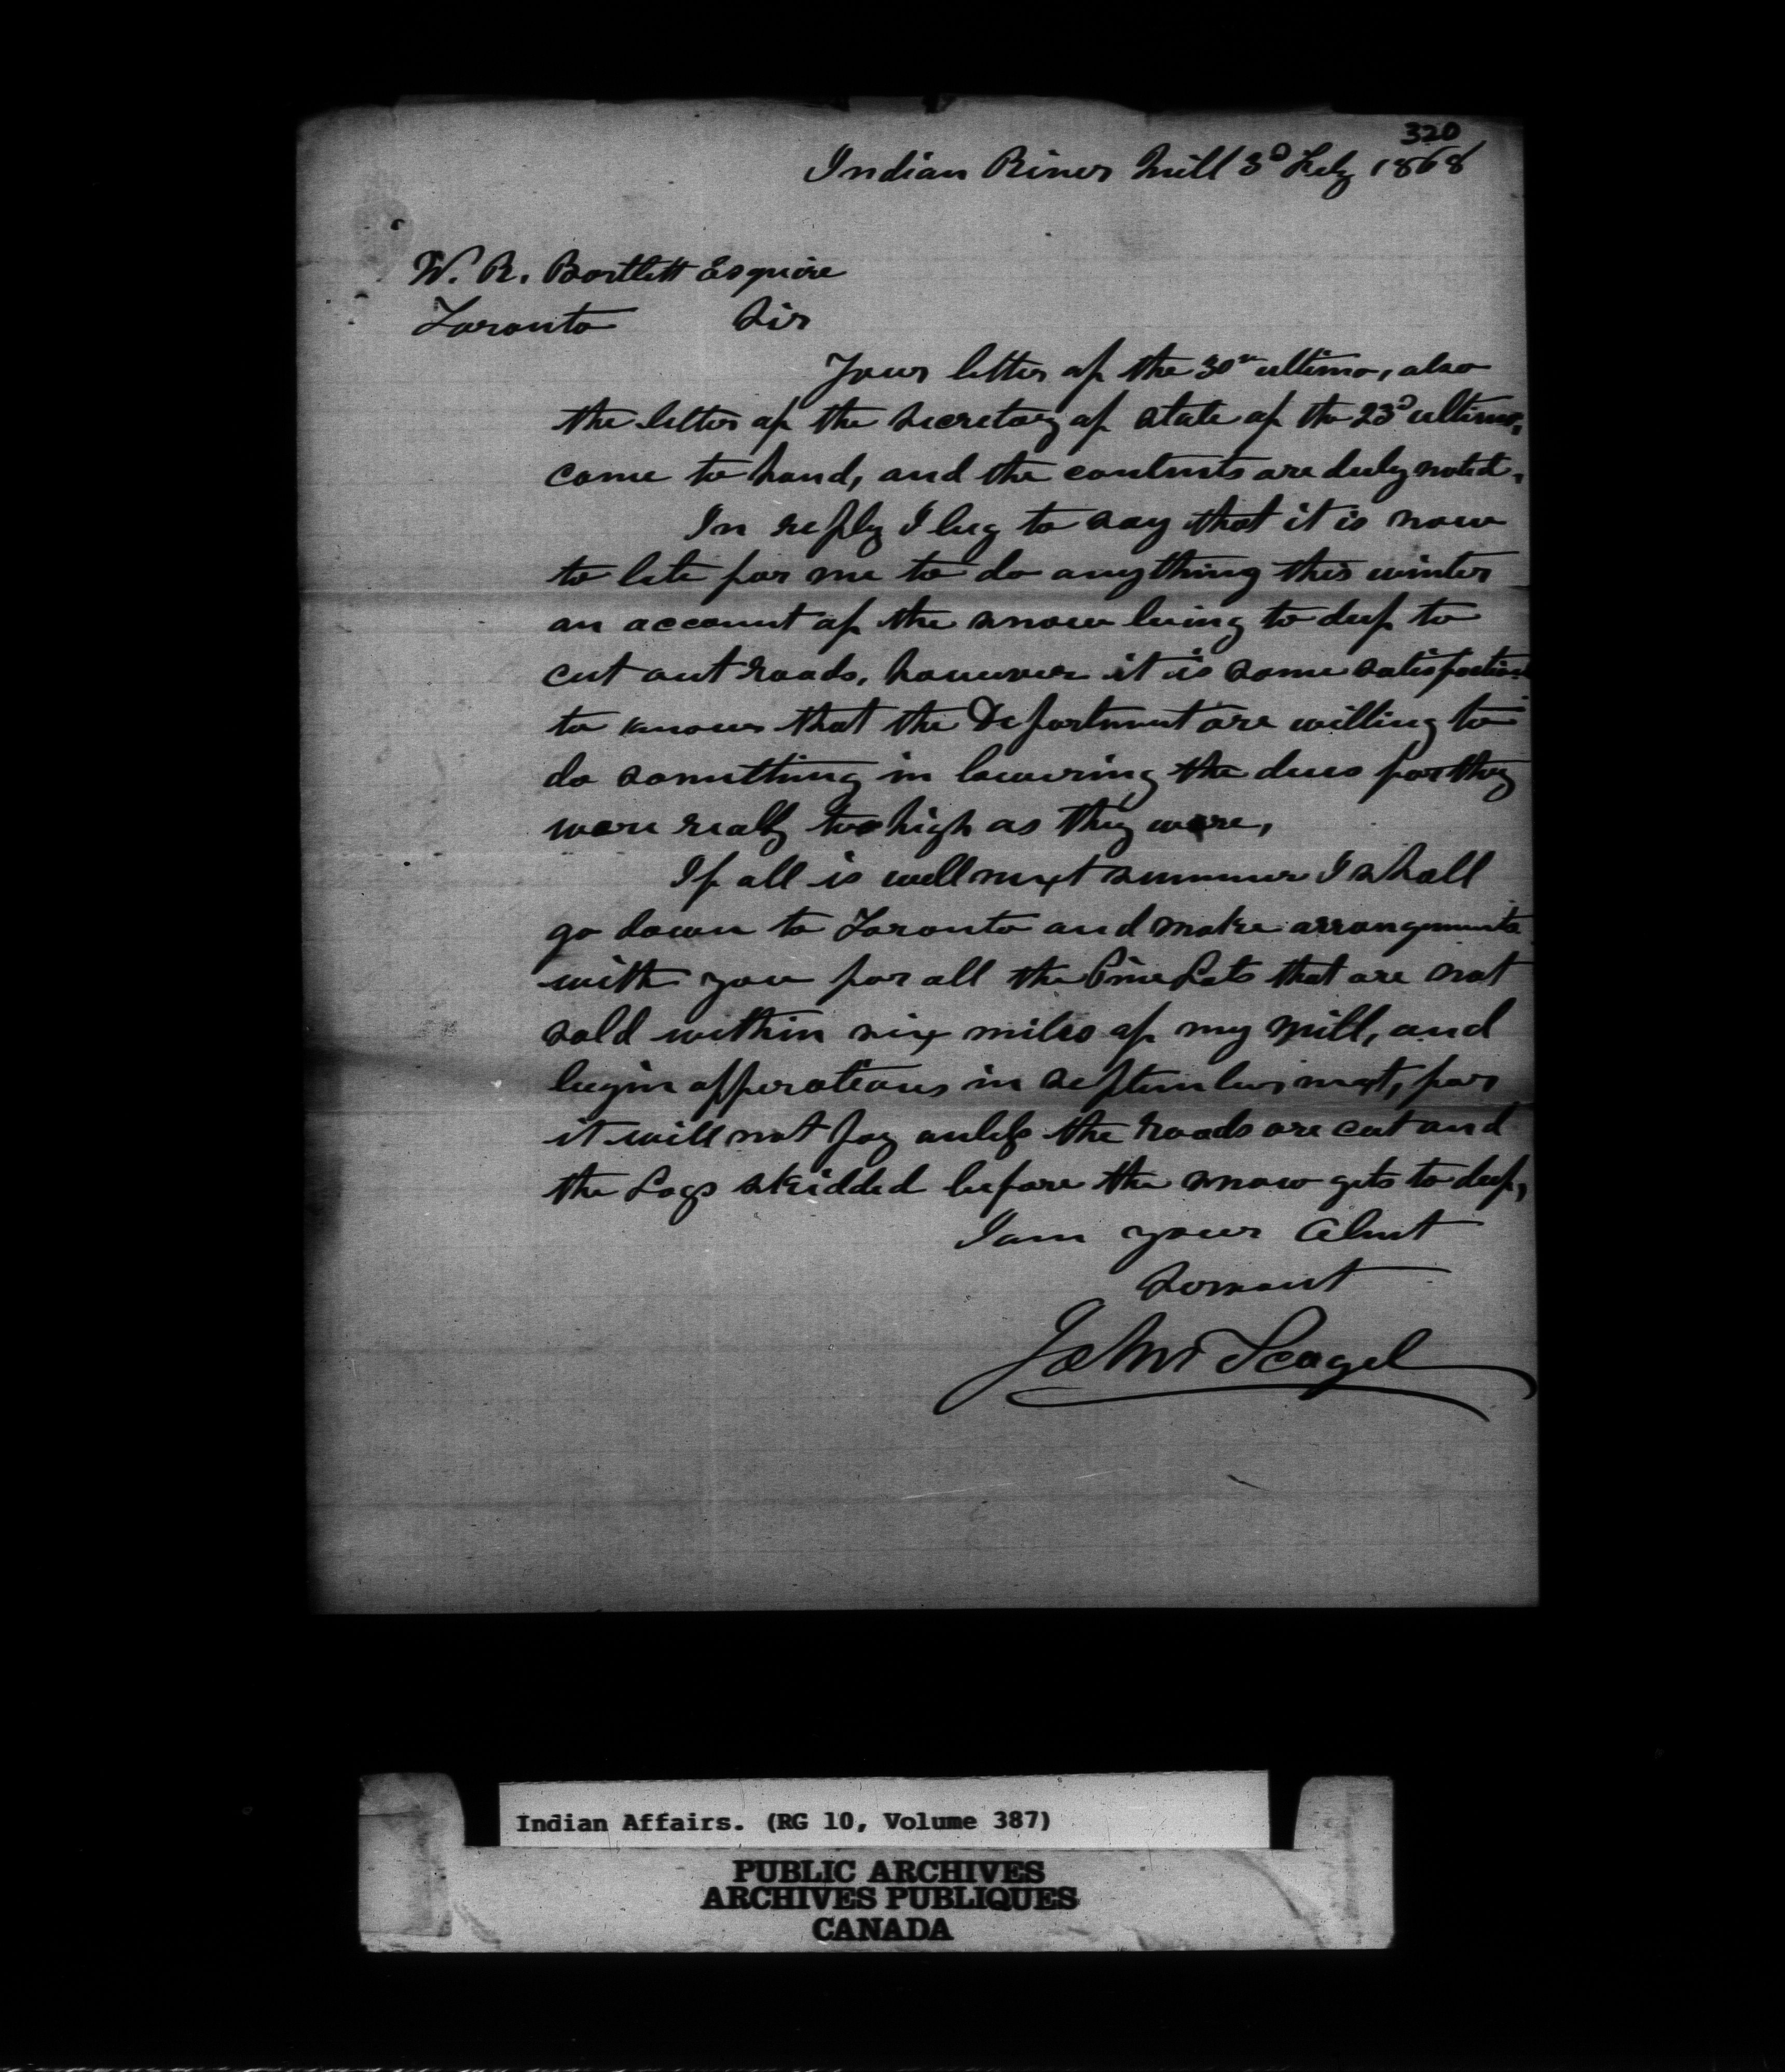 320
Indian River Mill 3D Feby 1868
W. R. Bartlett Esquire
Toronto Sir
Your letter of the 30th ultimo, also
the letter of the Secretary of State of the 23D ultimo,
came to hand, and the contents are duly noted.
In reply I beg to say that it is now
to late for me to do anything this winter
on account of the snow being to deep to
cut out roads, however it is some satisfaction
to know that the Department are willing to
do something in lowering the dues for they
were really too high as they were,
If all is well next summer I shall
go down to Toronto and make arrangements
with you for all the Pine Lots that are not
sold within six miles of my mill, and
begin opperations in September next, for
it will not pay unless the roads are cut and
the Logs skidded before the snow gets to deep,
I am your Obnt
Servant
John Seagel
Indian Affairs. (RG 10, Volume 387)
PUBLIC ARCHIVES
ARCHIVES PUBLIQUES
CANADA